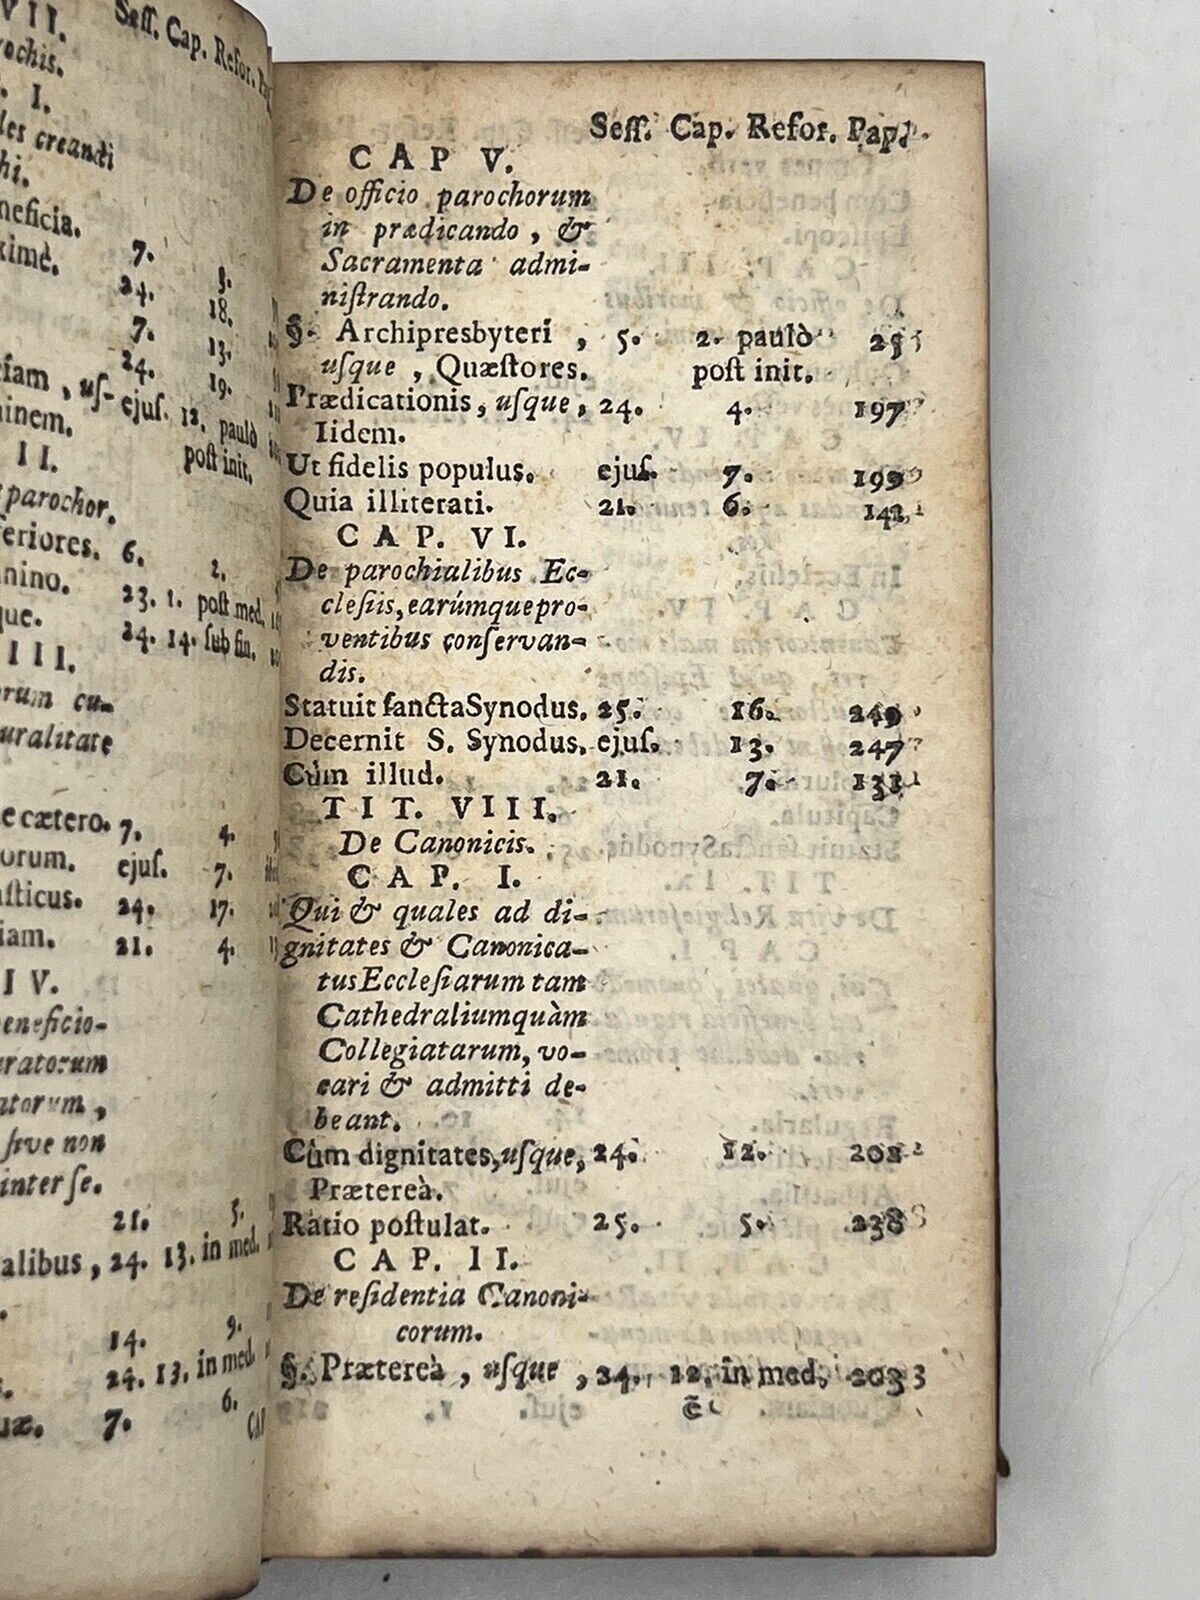 VII.
Seſſ. Cap. Refor. Pag
rochis.
. I.
les creandi
hi.
neficia. 7. 3.
ximè. 24. 18.
7. 13.
24. 19.
iam, uſ- ejuſ. 12. paulò
ninem. poſt init.
II.
parochor.
feriores. 6. 2.
nino. 23. 1. poſt med.
que. 24. 14. ſub fin.
III.
orum cu-
uralitate
e cætero. 7. 4.
orum. ejuſ. 7.
aſticus. 24. 17.
iam. 21. 4.
IV.
beneficio-
uratorum
atorum,
ſive non
inter ſe.
21. 5.
alibus, 24. 13. in med.
14. 9.
24. 13. in med.
uæ. 7. 6.
CAP
Seſſ. Cap. Refor. Pag.
CAP V.
De officio parochorum
in prædicando, &
Sacramenta admi-
niſtrando.
§. Archipresbyteri, 5. 2. paulò 25
uſque, Quæſtores. poſt init.
Prædicationis, uſque, 24. 4. 197
Iidem.
Ut fidelis populus. ejuſ. 7. 199
Quia illiterati. 21. 6. 142
CAP. VI.
De parochialibus Ec-
cleſiis, earúmque pro-
ventibus conſervan-
dis.
Statuit ſancta Synodus. 25. 16. 249
Decernit S. Synodus. ejuſ. 13. 247
Cùm illud. 21. 7. 131
TIT. VIII.
De Canonicis.
CAP. I.
Qui & quales ad di-
gnitates & Canonica-
tus Eccleſiarum tam
Cathedralium quàm
Collegiatarum, vo-
cari & admitti de-
beant.
Cùm dignitates, uſque, 24. 12. 202
Prætereà.
Ratio poſtulat. 25. 5. 238
CAP. II.
De reſidentia Canoni-
corum.
§. Prætereà, uſque, 24. 12. in med. 203
c̃